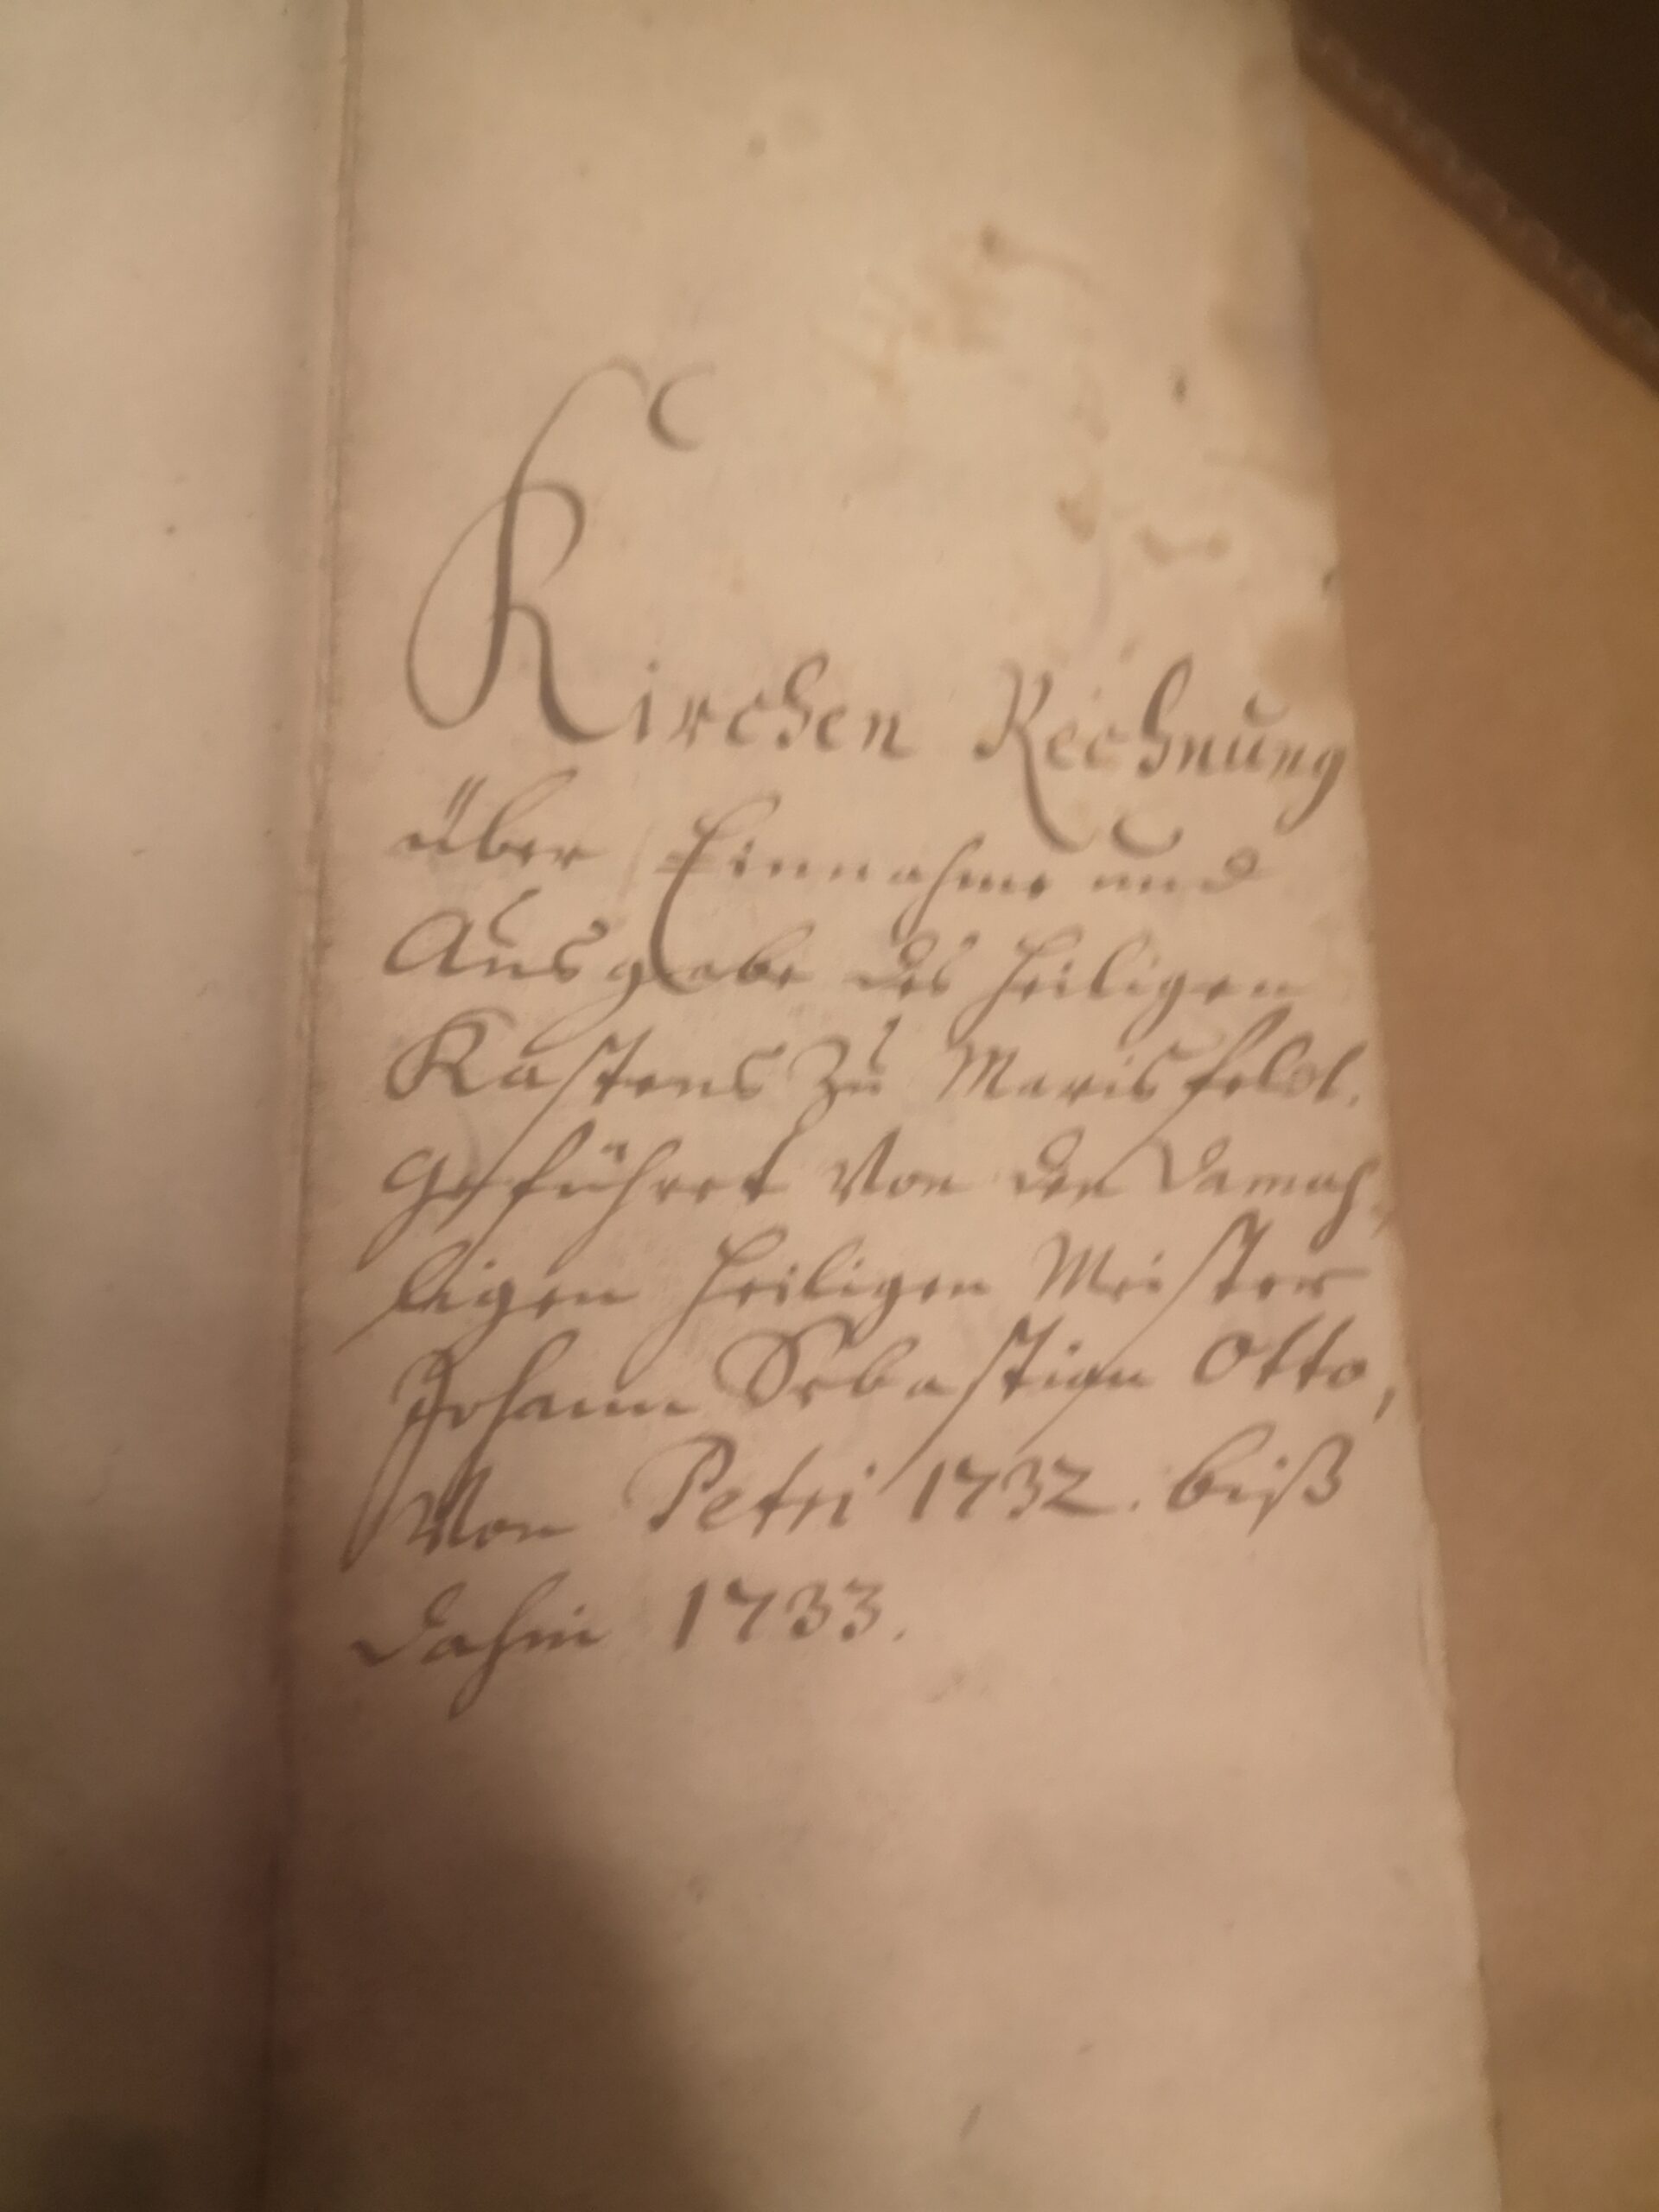 Kirchen Rechnung
über Einnahme und
Ausgabe des heiligen
Kastens zu Marisfeld.
Geführet von den damah,
ligen heiligen Meister
Johann Sebastian Otto,
Von Petri 1732. biß
dahin 1733.